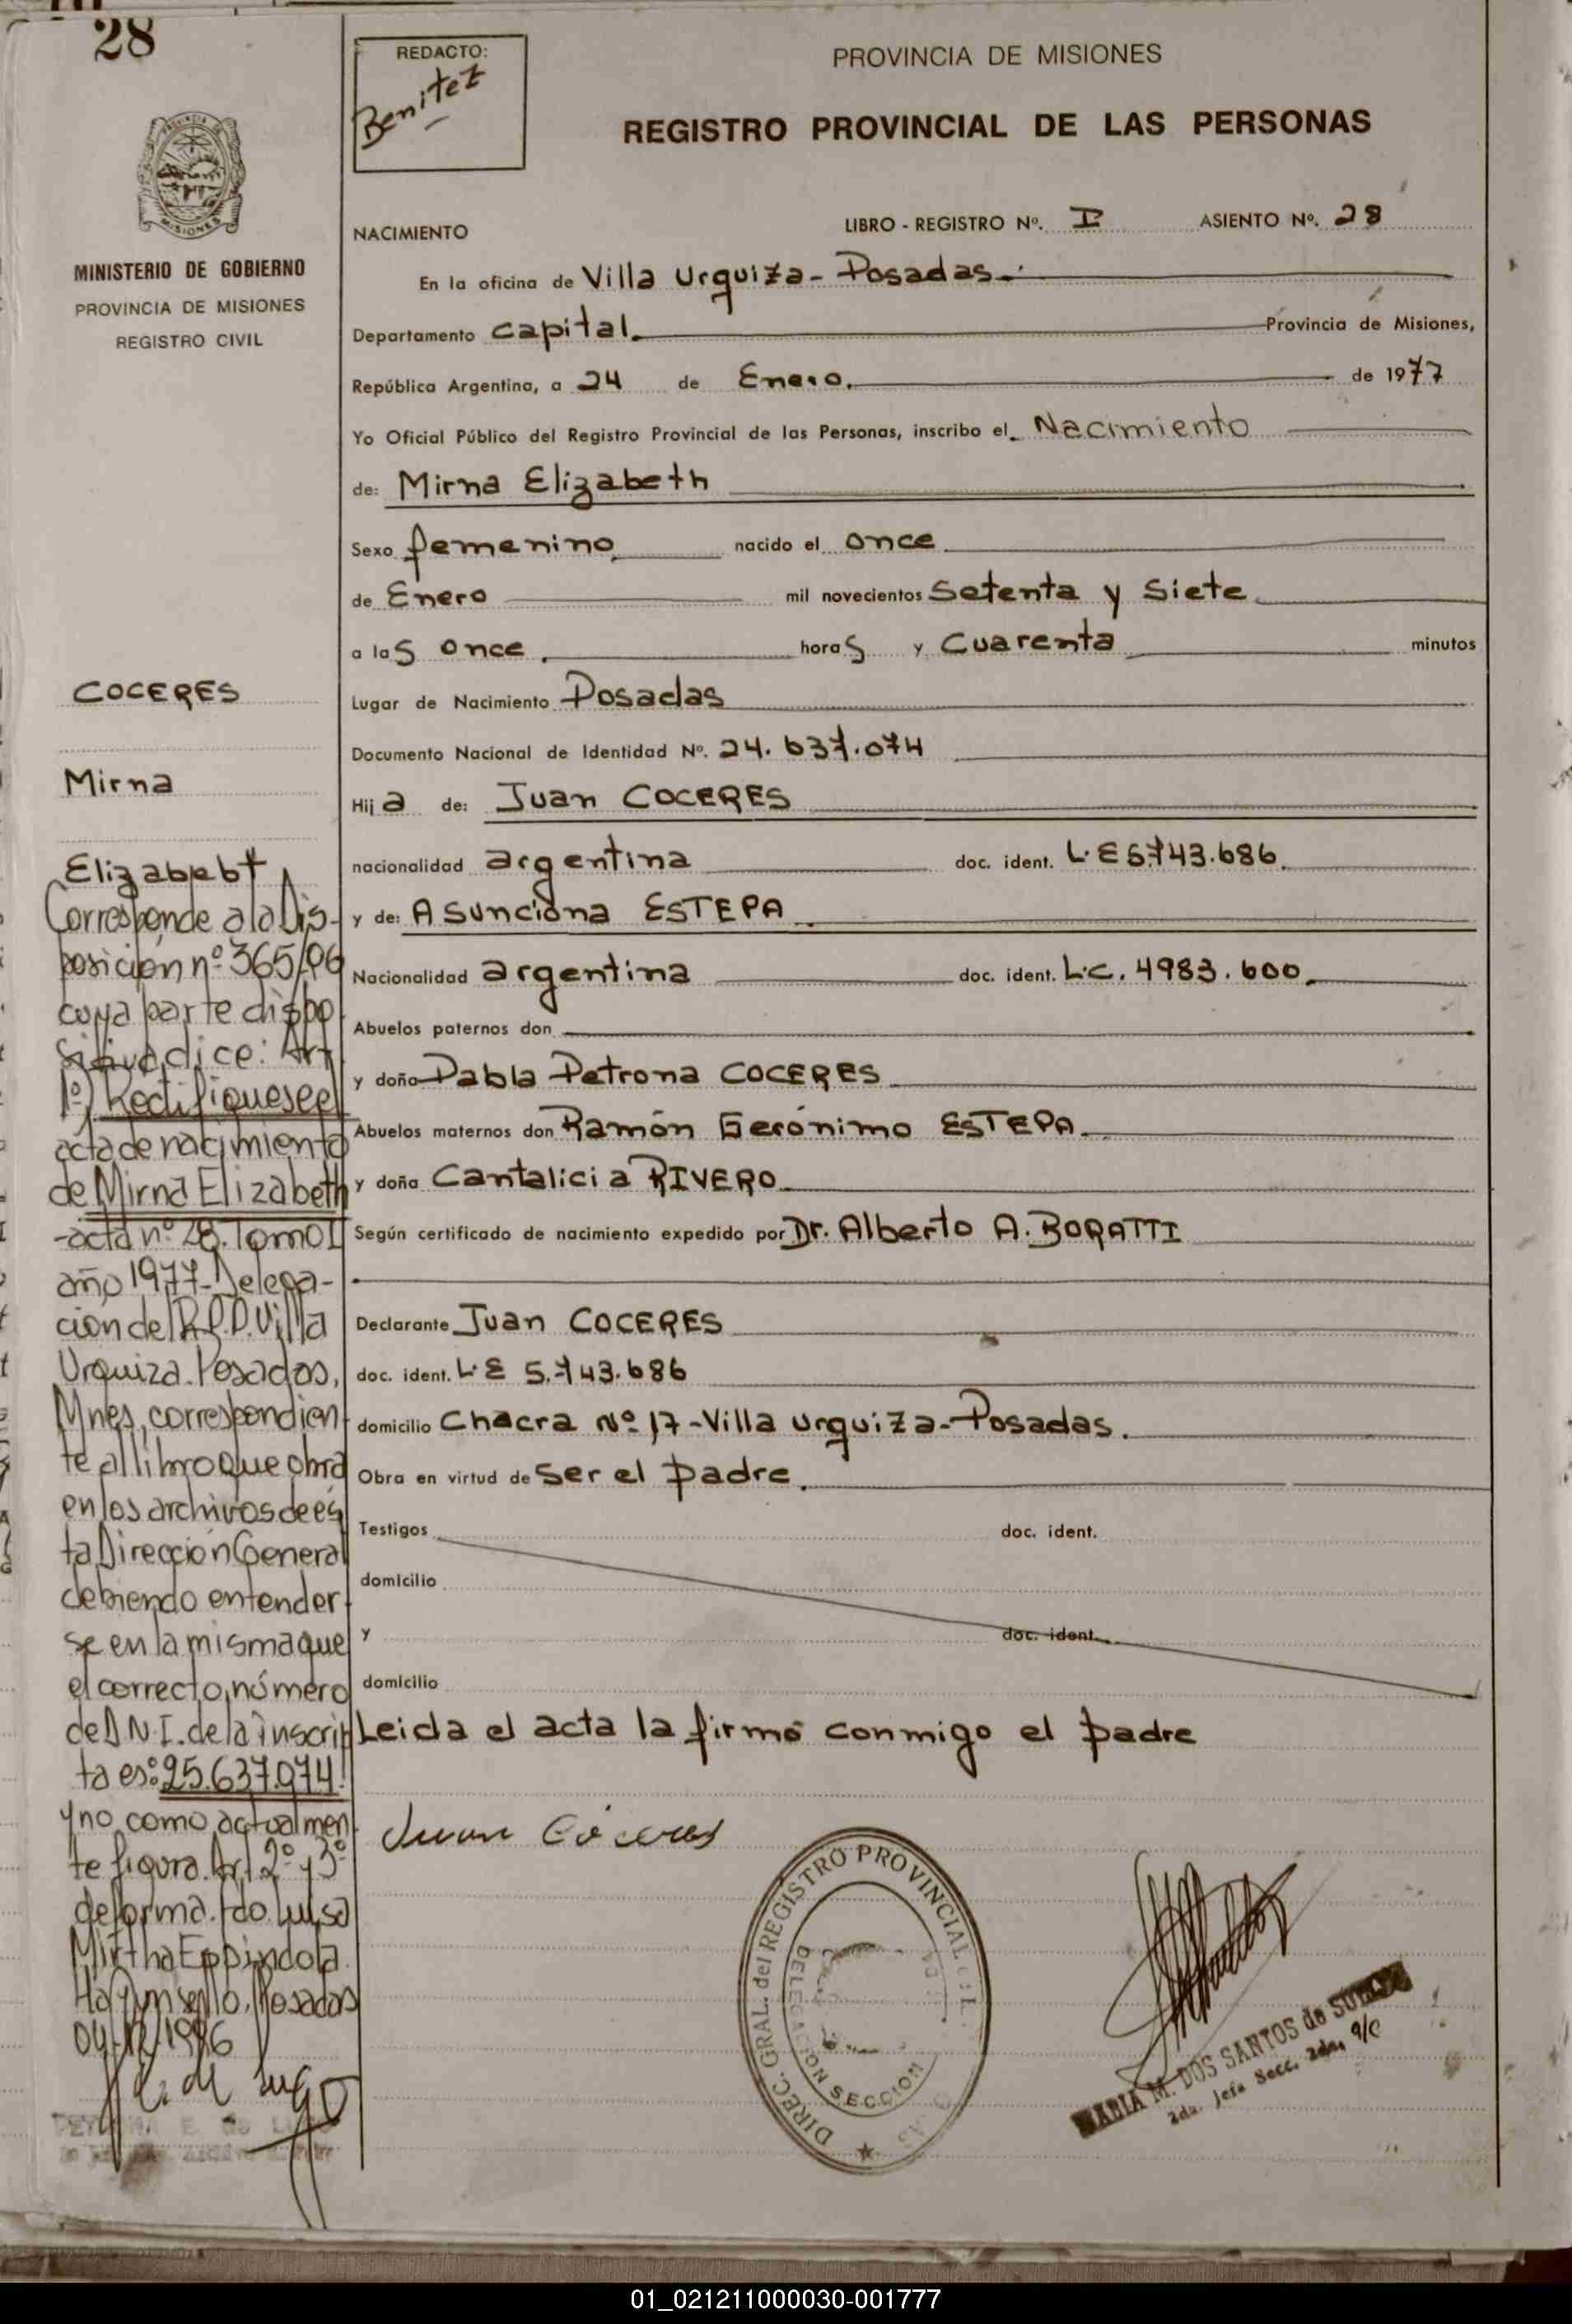 28
REDACTO:
Benitez
PROVINCIA DE MISIONES
REGISTRO PROVINCIAL DE LAS PERSONAS
MINISTERIO DE GOBIERNO
PROVINCIA DE MISIONES
REGISTRO CIVIL
NACIMIENTO
LIBRO - REGISTRO Nº. I ASIENTO Nº. 28
En la oficina de Villa Urquiza - Posadas.
Departamento Capital. Provincia de Misiones,
República Argentina, a 24 de Enero. de 1977
Yo Oficial Público del Registro Provincial de las Personas, inscribo el Nacimiento
de: Mirna Elizabeth
Sexo femenino nacido el once
de Enero mil novecientos Setenta y Siete
a las once. horas y Cuarenta minutos
Lugar de Nacimiento Posadas
Documento Nacional de Identidad Nº. 24.637.074
Hija de: Juan COCERES
nacionalidad argentina doc. ident. L.E 5.743.686.
y de: Asunciona ESTEPA
Nacionalidad argentina doc. ident. L.C. 4983.600.
Abuelos paternos don
y doña Pabla Petrona COCERES
Abuelos maternos don Ramón Gerónimo ESTEPA.
y doña Cantalicia RIVERO
Según certificado de nacimiento expedido por Dr. Alberto A. BORATTI
Declarante Juan COCERES
doc. ident. L.E 5.743.686
domicilio Chacra Nº 17 - Villa Urquiza - Posadas.
Obra en virtud de Ser el padre.
Testigos doc. ident.
domicilio
y doc. ident.
domicilio
Leida el acta la firmó conmigo el padre
Juan Cóceres
COCERES
Mirna
Elizabebt
Corresponde a la Dis-
posición nº 365/96
cuya parte dispo
sitiva dice: Art
1º) Rectifiquese el
acta de nacimiento
de Mirna Elizabeth
-acta nº 28. Tomo I
año 1977- Delega-
ción del R.P.P. Villa
Urquiza. Posadas,
Mnes, correspondien
te al libro que obra
en los archivos de és
ta Dirección General
debiendo entender
se en la misma que
el correcto número
de D.N.I. de la inscrip
ta es: 25.637.074
y no como actualmen
te figura. Art 2º y 3º
de forma. Fdo. Luisa
Mirtha Espindola.
Hay un sello. Posadas
04-12-1996
DIREC. GRAL. del REGISTRO PROVINCIAL
DELEGACION SECCION
MARIA M. DOS SANTOS de
2da. Jefa Secc. 2da. a/c
01_021211000030-001777